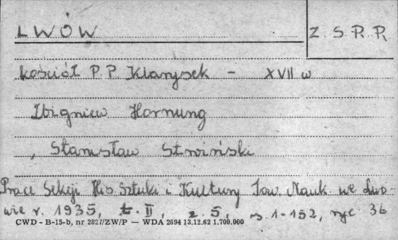 LWÓW
Z.S.R.R
kościół P.P. Klarysek - XVII w
Zbigniew Hornung
, Stanisław
Prace Sekcji His. Sztuki i Kultury Tow. Nauk. we Lwo-
wie r. 1935, t. II, z. 5, s. 1-152, ryc. 36
CWD - B-15-b, nr 2827/ZW/P — WDA 2694 13.12.62 1.700.000